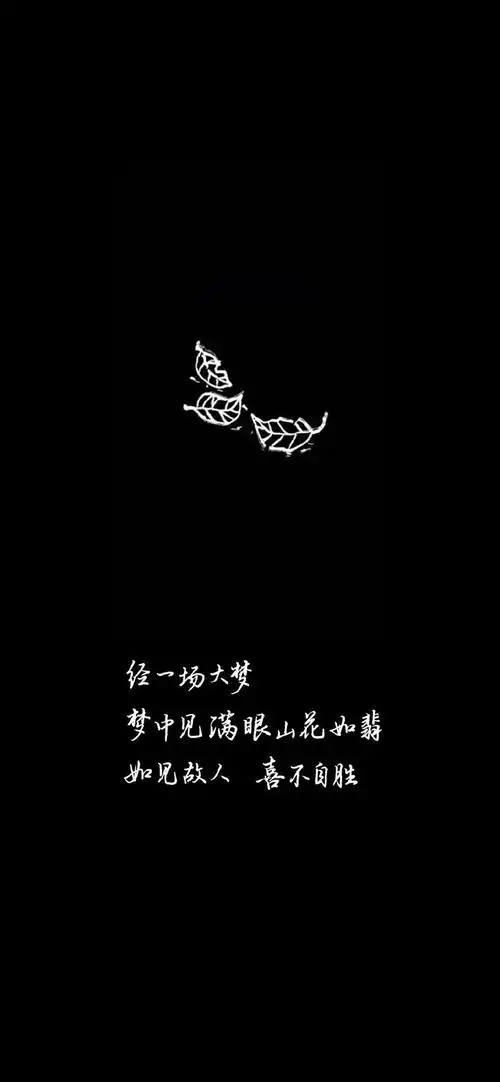 经一场大梦
梦中见满眼山花如翡
如见故人 喜不自胜